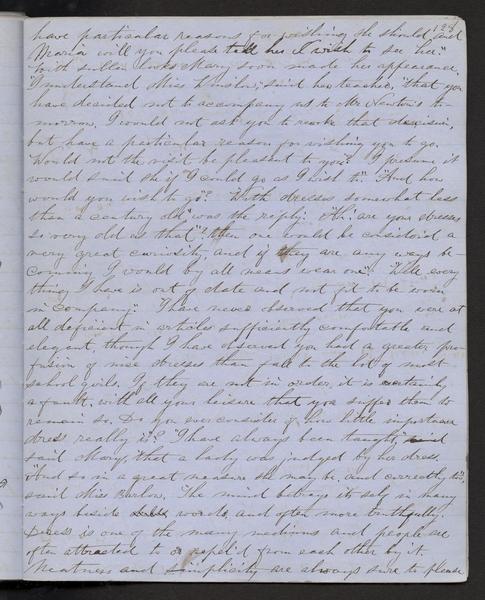 128
have particular reasons for wishing she should, and
Maria will you please tell her I wish to see her"
With sullen looks Mary soon made her appearance.
"I understand Miss Winslow," said her teacher, "that you
have decided not to accompany us to Mr Newton's to-
morrow. I would not ask you to revoke that decision,
but have a particular reason for wishing you to go.
Would not the visit be pleasant to you?" "I presume it
would" said she "if I could go as I wish to". "And how
would you wish to go"? "With dresses somewhat less
than a century old," was the reply. "Ah! are your dresses
so very old as that"? "then one would be considered a
very great curiosity, and if they are any ways be-
coming I would by all means wear one". "Well every
thing I have is out of date and not fit to be worn
in company". "I have never observed that you were at
all deficient in articles sufficiently comfortable and
elegant, though I have observed you had a greater pro-
fusion of nice dresses than fall to the lot of most
school girls. If they are not in order, it is certainly
a fault, with all your leisure that you suffer them to
remain so. Do you ever consider of how little importance
dress really is"? "I have always been taught,"
said Mary, "that a lady was judged by her dress."
"And so in a great measure she may be, and correctly too,"
said Miss Barlow, "The mind betrays its self in many
ways beside words, and often more truthfully.
Dress is one of the many mediums and people are
often attracted to or repel'd from each other by it.
Neatness and simplicity are always sure to please